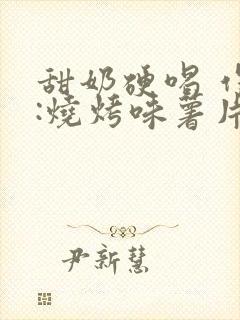 甜奶硬唱
:燒烤味薯片
尹新慧